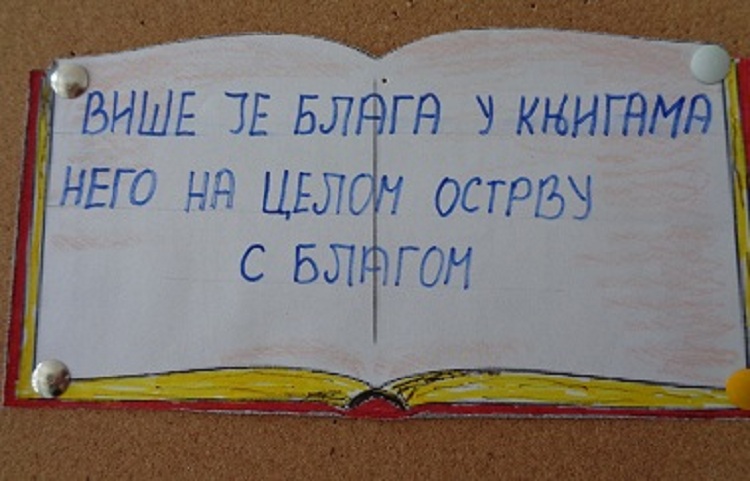 ВИШЕ ЈЕ БЛАГА У КЊИГАМА
НЕГО НА ЦЕЛОМ ОСТРВУ
С БЛАГОМ